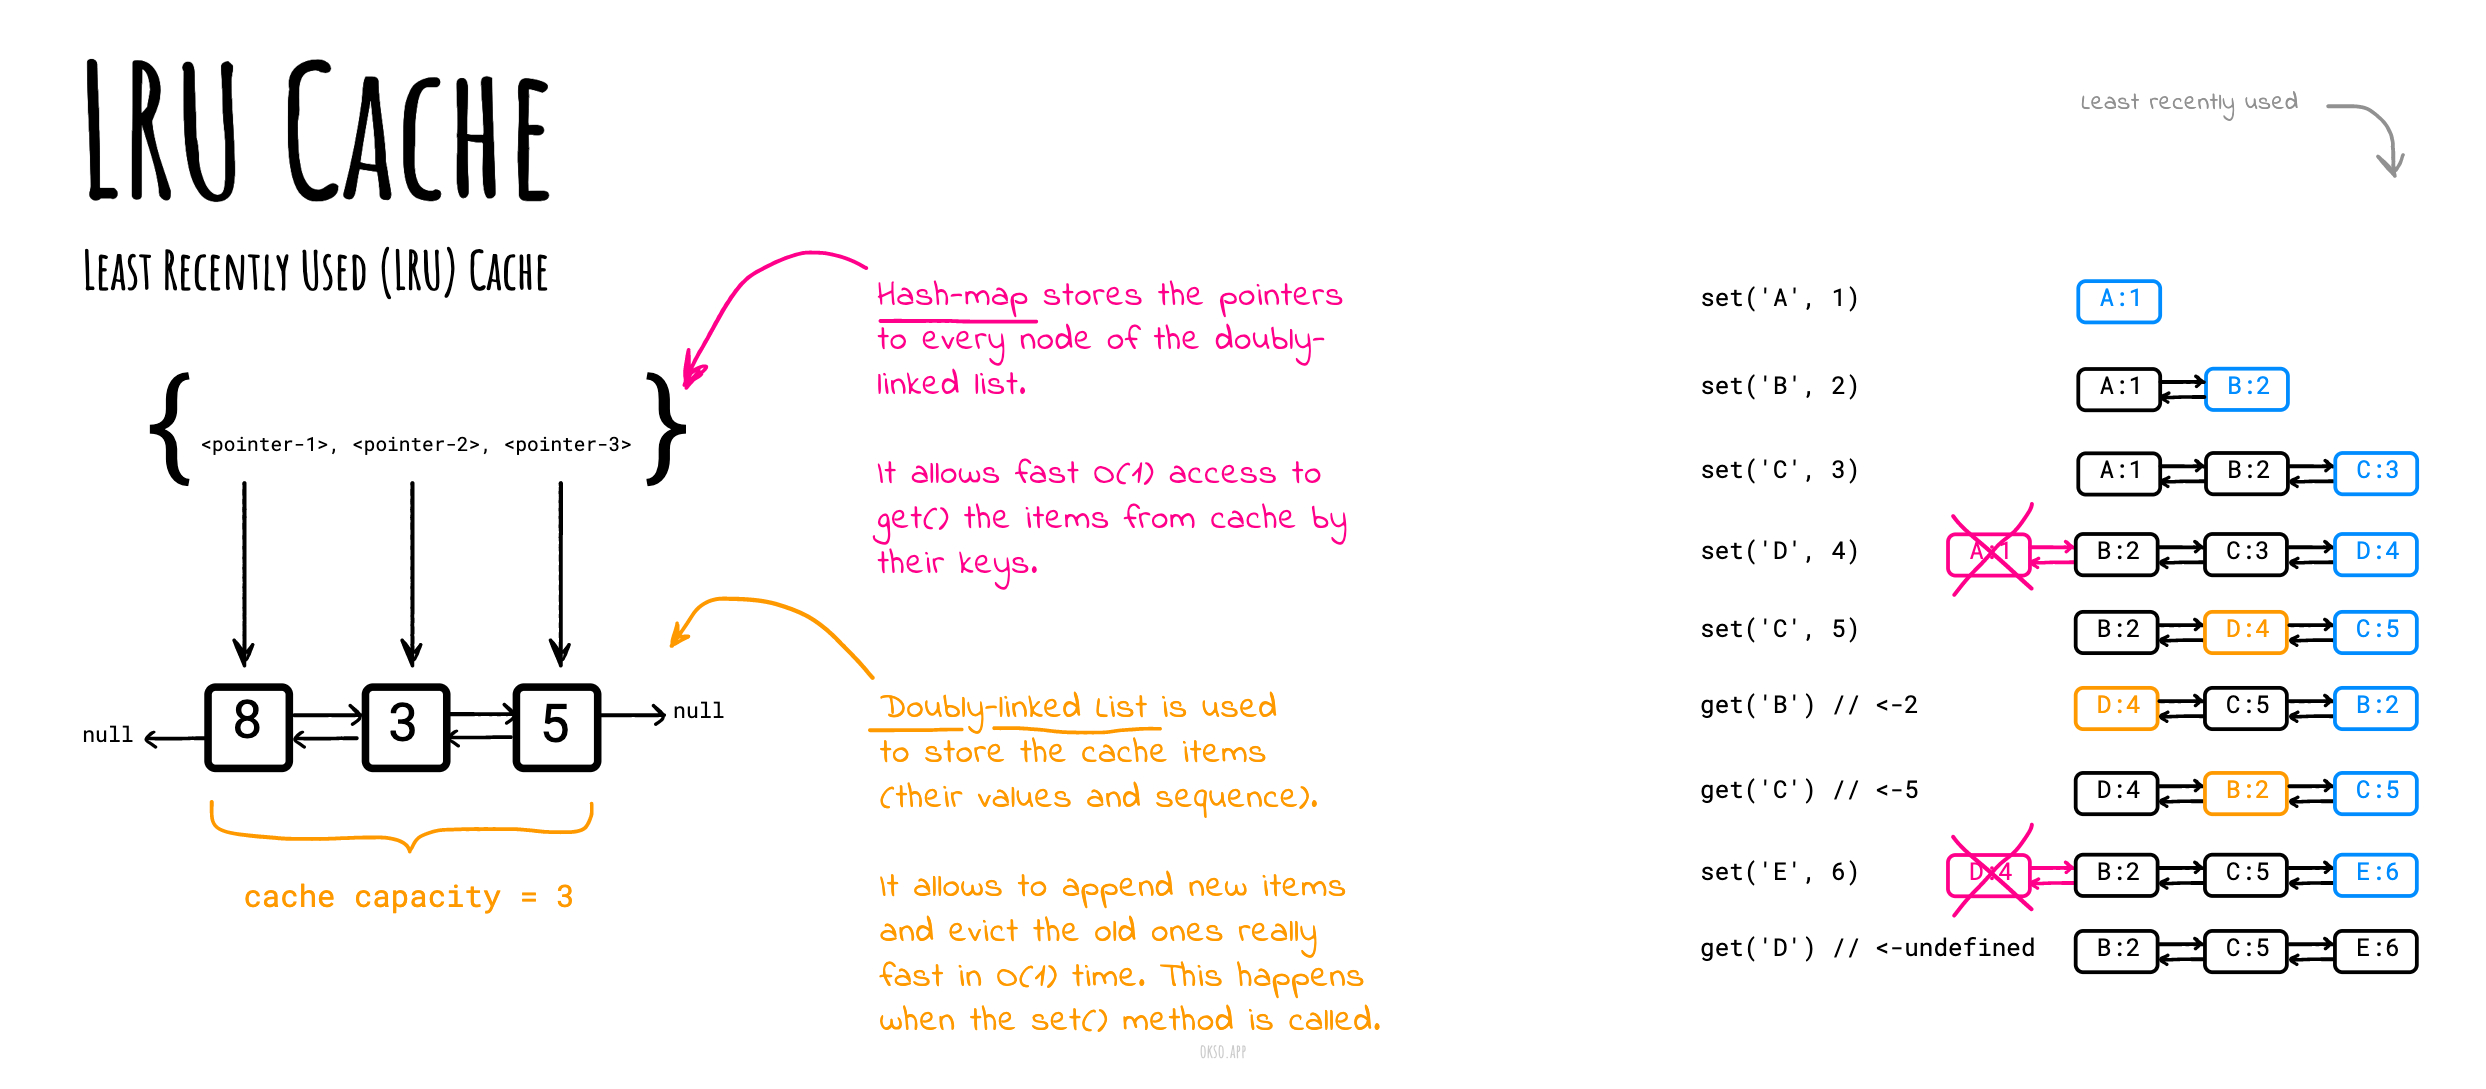 LRU CACHE
LEAST RECENTLY USED (LRU) CACHE
{ <pointer-1>, <pointer-2>, <pointer-3> }
null
8
3
5
null
cache capacity = 3
Hash-map stores the pointers
to every node of the doubly-
linked list.
It allows fast O(1) access to
get() the items from cache by
their keys.
Doubly-linked List is used
to store the cache items
(their values and sequence).
It allows to append new items
and evict the old ones really
fast in O(1) time. This happens
when the set() method is called.
OKSO.APP
Least recently used
set('A', 1) A:1
set('B', 2) A:1 B:2
set('C', 3) A:1 B:2 C:3
set('D', 4) A:1 B:2 C:3 D:4
set('C', 5) B:2 D:4 C:5
get('B') // <-2 D:4 C:5 B:2
get('C') // <-5 D:4 B:2 C:5
set('E', 6) D:4 B:2 C:5 E:6
get('D') // <-undefined B:2 C:5 E:6